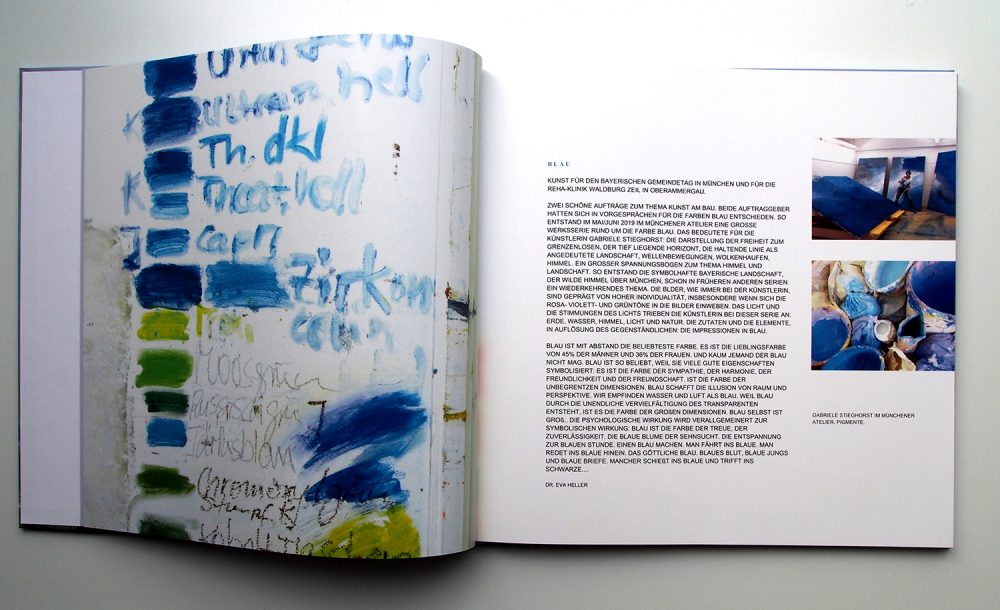 Ultram hell
Th. dkl
K Theat. hell
Capri
Zirkon
Moosgrün
BLAU
KUNST FÜR DEN BAYERISCHEN GEMEINDETAG IN MÜNCHEN UND FÜR DIE
REHA-KLINIK WALDBURG ZEIL IN OBERAMMERGAU.
ZWEI SCHÖNE AUFTRÄGE ZUM THEMA KUNST AM BAU. BEIDE AUFTRAGGEBER
HATTEN SICH IN VORGESPRÄCHEN FÜR DIE FARBEN BLAU ENTSCHIEDEN. SO
ENTSTAND IM MAI/JUNI 2019 IM MÜNCHENER ATELIER EINE GROSSE
WERKSSERIE RUND UM DIE FARBE BLAU. DAS BEDEUTETE FÜR DIE
KÜNSTLERIN GABRIELE STIEGHORST: DIE DARSTELLUNG DER FREIHEIT ZUM
GRENZENLOSEN, DER TIEF LIEGENDE HORIZONT, DIE HALTENDE LINIE ALS
ANGEDEUTETE LANDSCHAFT, WELLENBEWEGUNGEN, WOLKENHAUFEN,
HIMMEL. EIN GROSSER SPANNUNGSBOGEN ZUM THEMA HIMMEL UND
LANDSCHAFT. SO ENTSTAND DIE SYMBOLHAFTE BAYERISCHE LANDSCHAFT,
DER WILDE HIMMEL ÜBER MÜNCHEN, SCHON IN FRÜHEREN ANDEREN SERIEN
EIN WIEDERKEHRENDES THEMA. DIE BLDER, WIE IMMER BEI DER KÜNSTLERIN,
SIND GEPRÄGT VON HOHER INDIVIDUALITÄT, INSBESONDERE WENN SICH DIE
ROSA- VIOLETT- UND GRÜNTÖNE IN DIE BILDER EINWEBEN. DAS LICHT UND
DIE STIMMUNGEN DES LICHTS TRIEBEN DIE KÜNSTLERIN BEI DIESER SERIE AN.
ERDE, WASSER, HIMMEL, LICHT UND NATUR. DIE ZUTATEN UND DIE ELEMENTE,
IN AUFLÖSUNG DES GEGENSTÄNDLICHEN: DIE IMPRESSIONEN IN BLAU.
BLAU IST MIT ABSTAND DIE BELIEBTESTE FARBE. ES IST DIE LIEBLINGSFARBE
VON 45% DER MÄNNER UND 36% DER FRAUEN. UND KAUM JEMAND DER BLAU
NICHT MAG. BLAU IST SO BELIEBT, WEIL SIE VIELE GUTE EIGENSCHAFTEN
SYMBOLISIERT: ES IST DIE FARBE DER SYMPATHIE, DER HARMONIE, DER
FREUNDLICHKEIT UND DER FREUNDSCHAFT. IST DIE FARBE DER
UNBEGRENZTEN DIMENSIONEN. BLAU SCHAFFT DIE ILLUSION VON RAUM UND
PERSPEKTIVE. WIR EMPFINDEN WASSER UND LUFT ALS BLAU. WEIL BLAU
DURCH DIE UNENDLICHE VERVIELFÄLTIGUNG DES TRANSPARENTEN
ENTSTEHT, IST ES DIE FARBE DER GROßEN DIMENSIONEN. BLAU SELBST IST
GROß.. DIE PSYCHOLOGISCHE WIRKUNG WIRD VERALLGEMEINERT ZUR
SYMBOLISCHEN WIRKUNG: BLAU IST DIE FARBE DER TREUE, DER
ZUVERLÄSSIGKEIT. DIE BLAUE BLUME DER SEHNSUCHT. EINEN ENTSPANNUNG
ZUR BLAUEN STUNDE. EINEN BLAU MACHEN. MAN FÄHRT INS BLAUE. MAN
REDET INS BLAUE HINEIN. DAS GÖTTLICHE BLAU. BLAUES BLUT, BLAUE JUNGS
UND BLAUE BRIEFE. MANCHER SCHIEßT INS BLAUE UND TRIFFT INS
SCHWARZE....
DR. EVA HELLER
GABRIELE STIEGHORST IM MÜNCHENER
ATELIER, PIGMENTE.